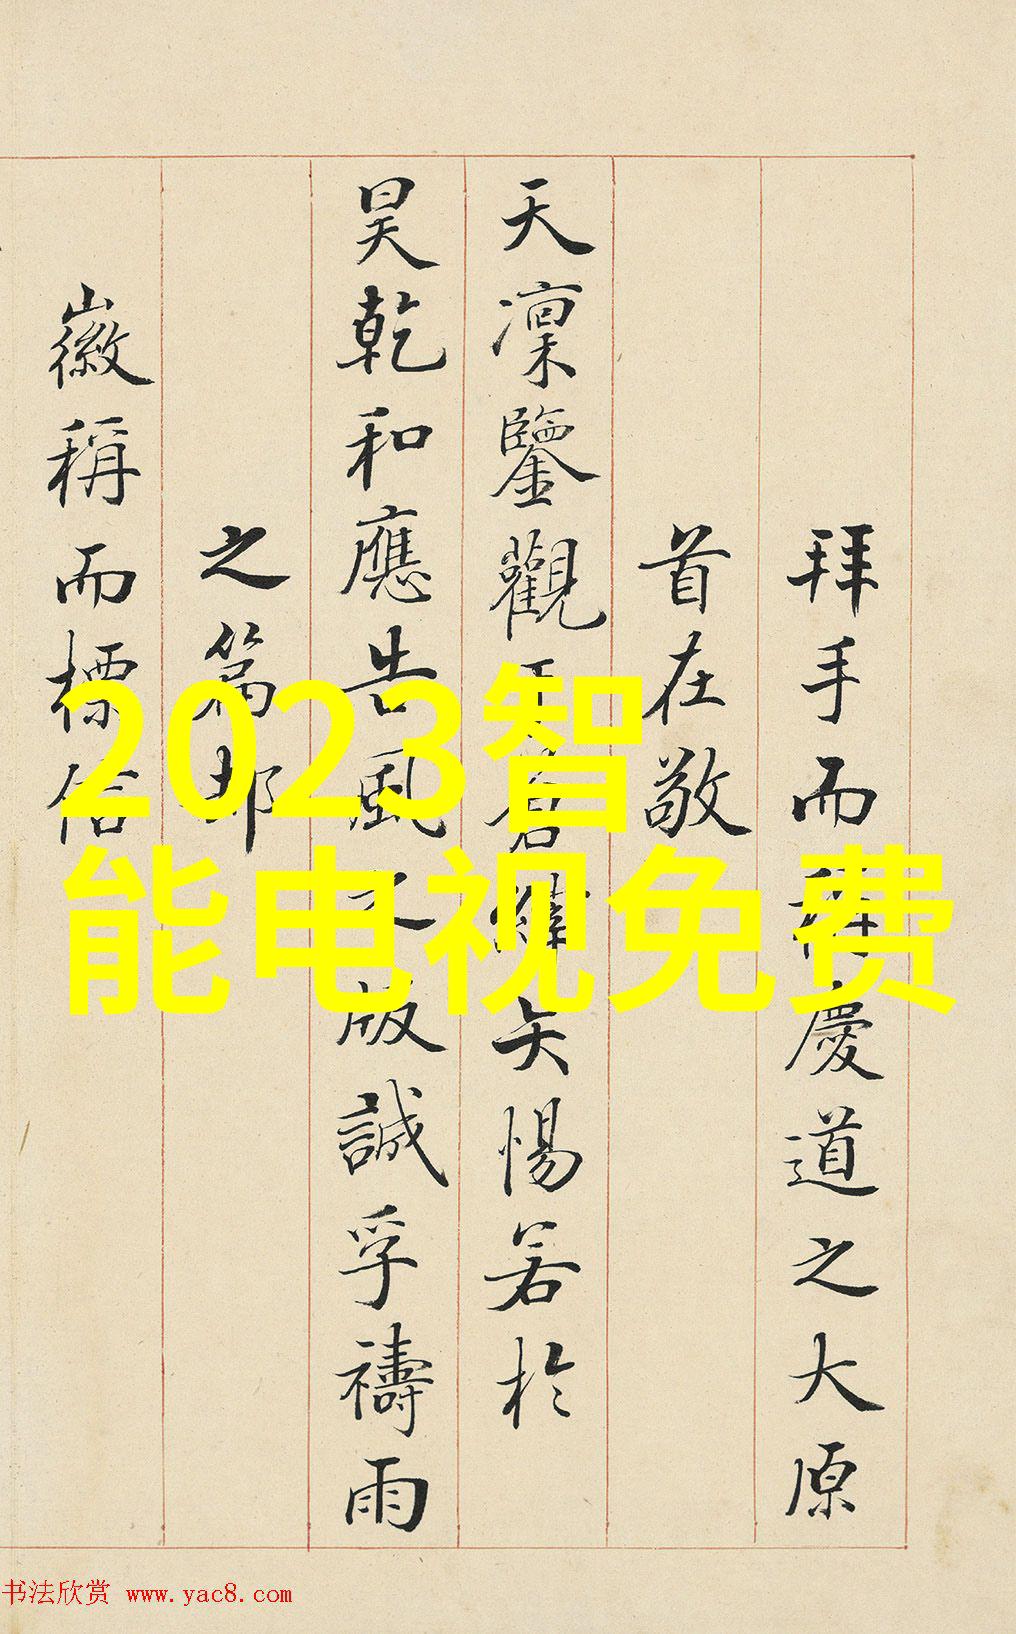 拜手而稱慶道之大原
首在敬
天凜鑒觀於若於
昊乾和應告風版誠孚禱雨
之篇
徽稱而標
2023智
能电视免费
书法欣赏 www.yac8.com